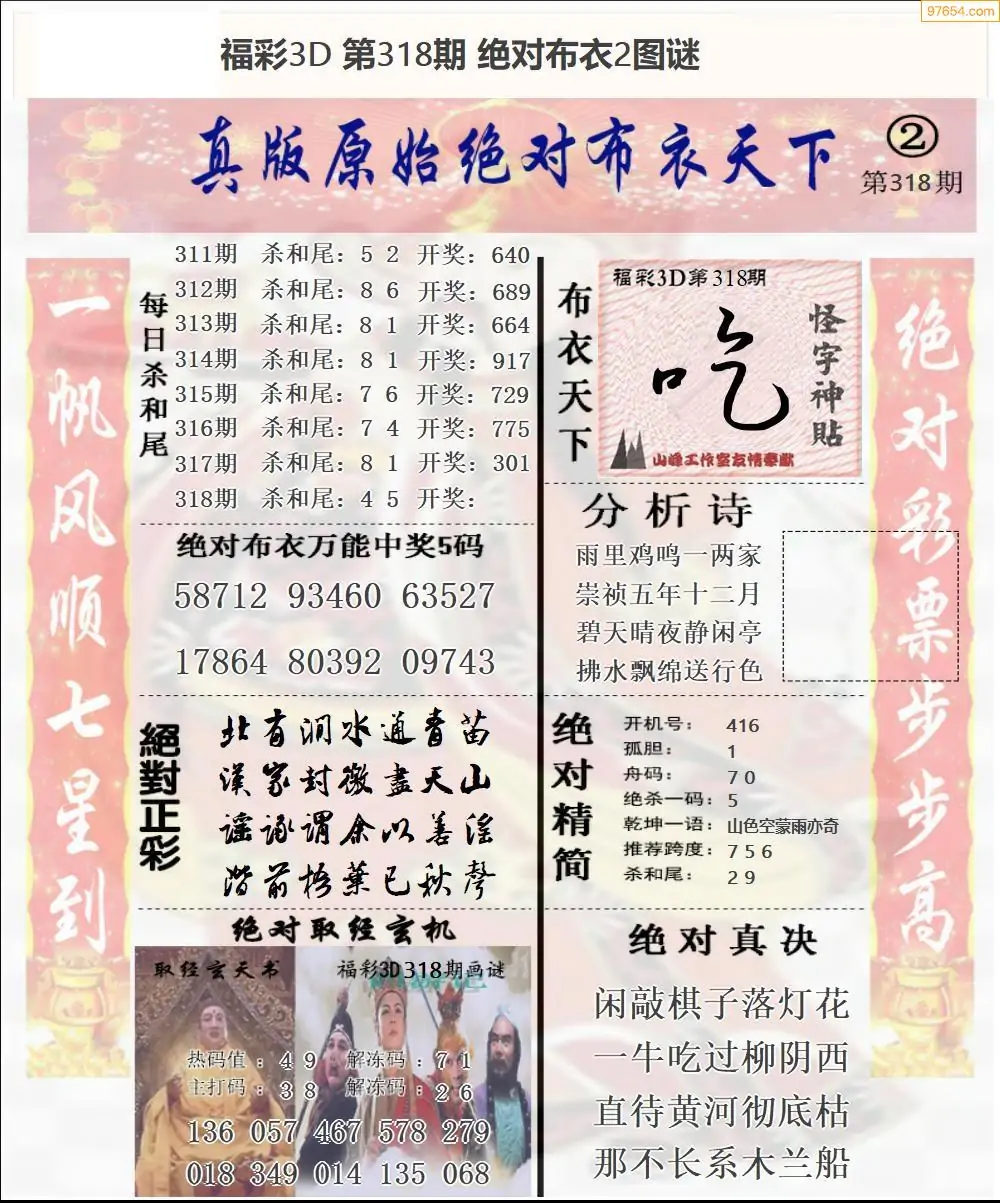 97654.com
福彩3D 第318期 绝对布衣2图谜
真版原始绝对布衣天下
②
第318期
一帆风顺七星到
每日杀和尾
311期 杀和尾：5 2 开奖：640
312期 杀和尾：8 6 开奖：689
313期 杀和尾：8 1 开奖：664
314期 杀和尾：8 1 开奖：917
315期 杀和尾：7 6 开奖：729
316期 杀和尾：7 4 开奖：775
317期 杀和尾：8 1 开奖：301
318期 杀和尾：4 5 开奖：
绝对布衣万能中奖5码
58712 93460 63527
17864 80392 09743
絕對正彩
北有澗水通青苗
漢家封徼盡天山
谣诼谓余以善淫
階前梧葉已秋聲
绝对取经玄机
取经玄天书
福彩3D318期画谜
热码值：4 9 解冻码：7 1
主打码：3 8 解冻码：2 6
136 057 467 578 279
018 349 014 135 068
布衣天下
福彩3D第318期
吃
怪字神貼
山峰工作室友情奉献
分析诗
雨里鸡鸣一两家
崇祯五年十二月
碧天晴夜静闲亭
拂水飘绵送行色
绝对精简
开机号： 416
孤胆： 1
舟码： 7 0
绝杀一码：5
乾坤一语：山色空蒙雨亦奇
推荐跨度：7 5 6
杀和尾： 2 9
绝对真决
闲敲棋子落灯花
一牛吃过柳阴西
直待黄河彻底枯
那不长系木兰船
绝对彩票步步高